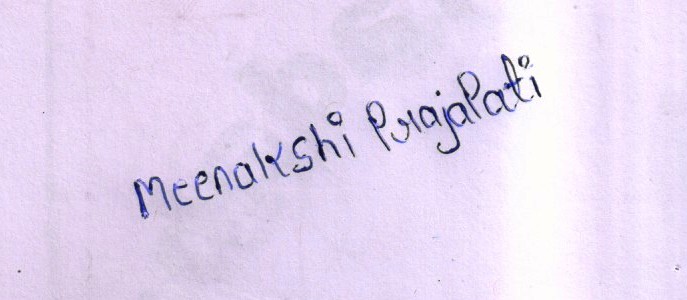 Meenakshi PrajaPati